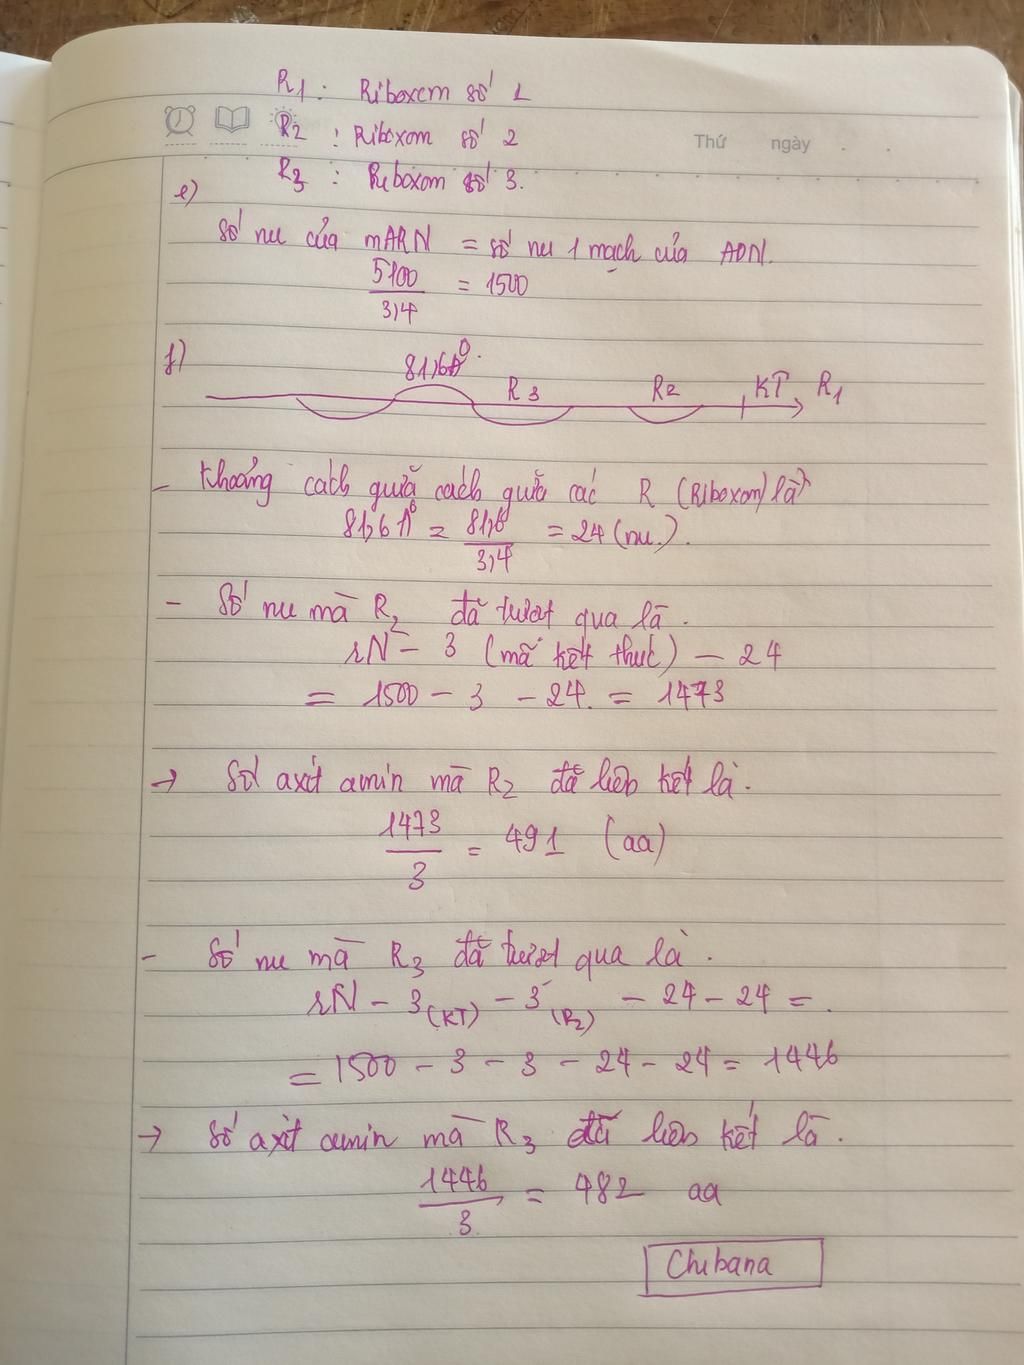 R1 : Riboxom số 1
R2 : Riboxom số 2
Thứ ngày
R3 : Riboxom số 3.
e)
số nu của mARN = số nu 1 mạch của ADN.
5100 / 3,4 = 1500
f)
81,6A⁰.
R3 R2 KT R1
- Khoảng cách giữa cách giữa các R (Riboxom) là
81,6A⁰ = 81,6 / 3,4 = 24 (nu.).
- Số nu mà R2 đã trượt qua là.
rN - 3 (mã kết thúc) - 24
= 1500 - 3 - 24. = 1473
→ Số axit amin mà R2 đã liên kết là.
1473 / 3 = 491 (aa)
- Số nu mà R3 đã trượt qua là.
rN - 3 (KT) - 3 (R2) - 24 - 24 = .
= 1500 - 3 - 3 - 24 - 24 = 1446
→ Số axit amin mà R3 đã liên kết là.
1446 / 3. = 482 aa
Chibana